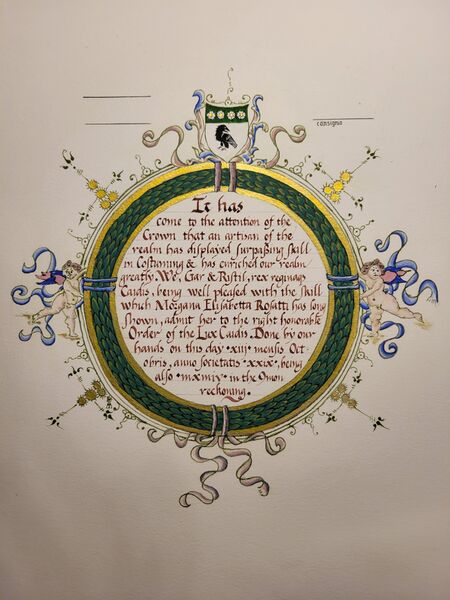 It has
come to the attention of the
Crown that an artisan of the
realm has displayed surpaßing skill
in Costuming & has enriched our realm
greatly. We, Gar & Ristil, rex reginaq
Caidis, being well pleased with the skill
which Elisabetta Rosatti has long
shown, admit her to the right honorable
Order of the Lux Caidis. Done by our
hands on this day ·xiij· mensis Oct
obris, anno societatis ·xxix·, being
also ·mxmiv· in the
reckoning.